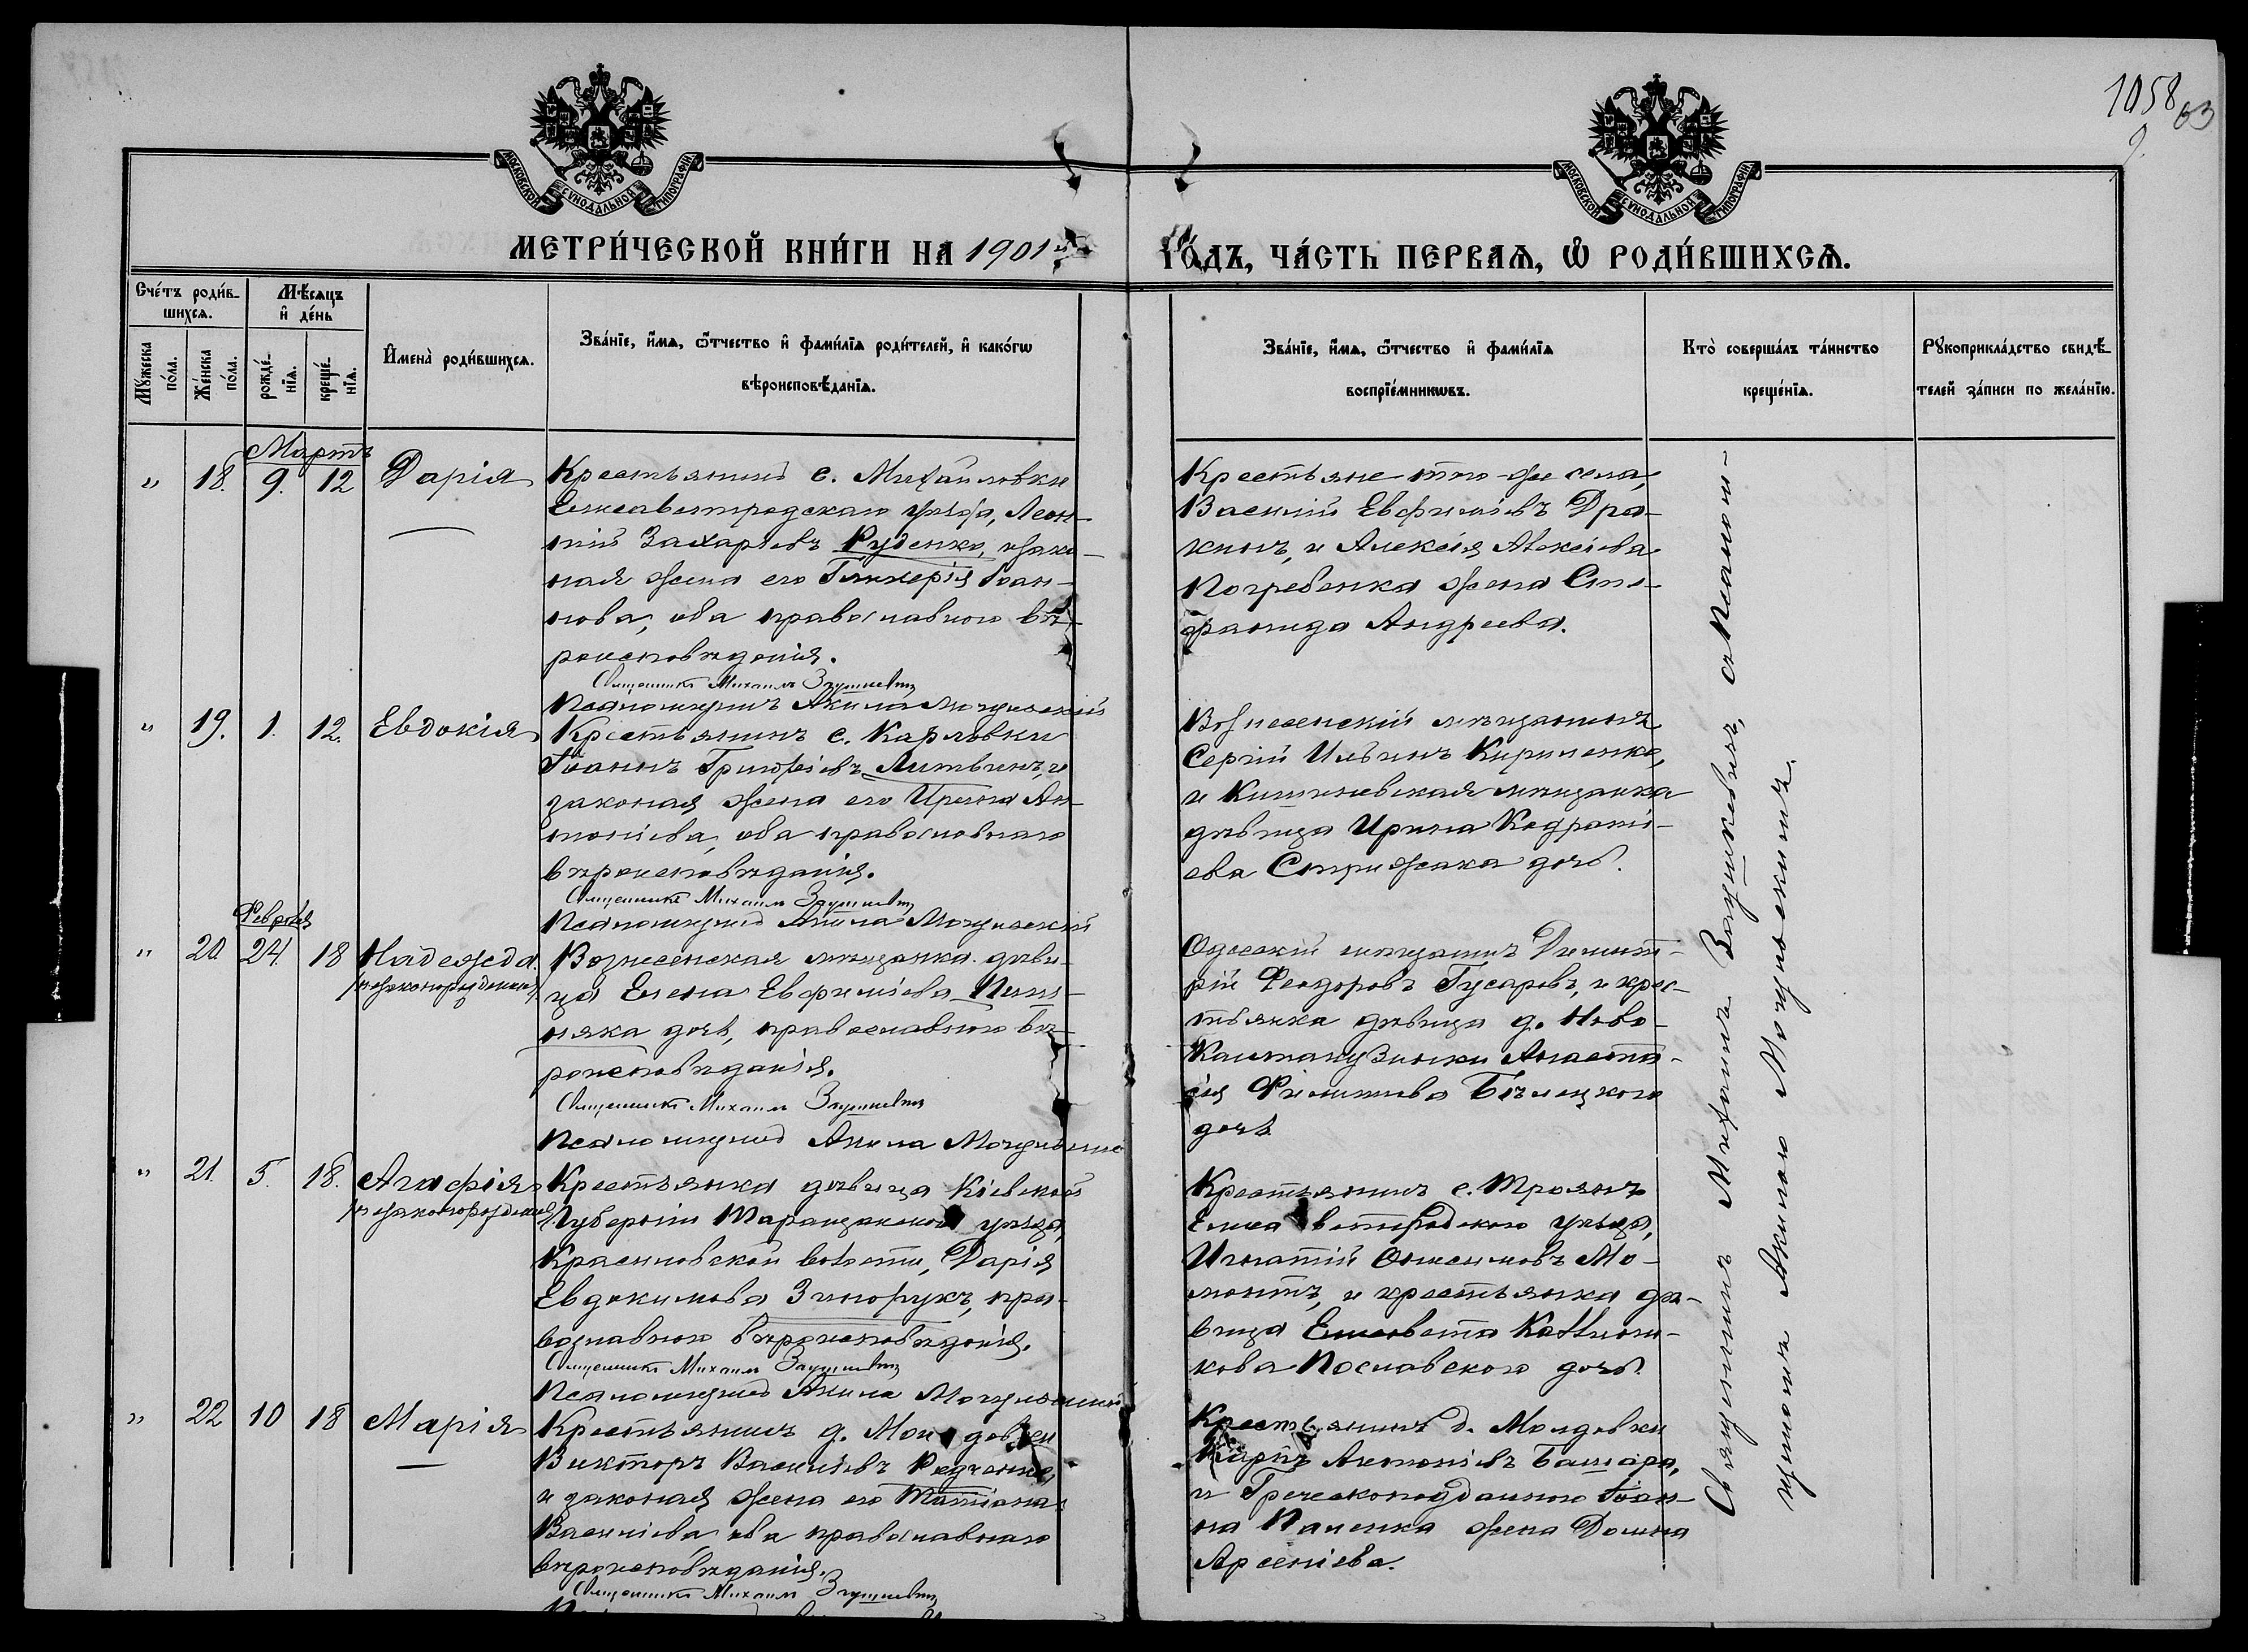 1058
63
МОСКОВСКОЙ СѴНОДАЛЬНОЙ ТИПОГРАФІИ
МОСКОВСКОЙ СѴНОДАЛЬНОЙ ТИПОГРАФІИ
МЕТРИ́ЧЕСКОЙ КНИ́ГИ НА 1901й
ГО́ДЪ, ЧА́СТЬ ПЕРВАѦ, Ѽ РОДИ́ВШИХСѦ.
Сче́тъ роди́в-
шихсѧ.
Мꙋ́жеска по́ла.
Же́нска по́ла.
Мѣ́сѧцъ
и҆ де́нь
рожде́-
нїѧ.
креще́-
нїѧ.
И҆мена̀ роди́вшихсѧ.
Зва́нїе, и҆́мѧ, ѻ҆́тчество и҆ фами́лїѧ роди́телей, и҆ како́гѡ
вѣроисповѣ́данїѧ.
Зва́нїе, и҆́мѧ, ѻ҆́тчество и҆ фами́лїѧ
воспрїе́мникѡвъ.
Кто̀ соверша́лъ та́инство
креще́нїѧ.
Рꙋкоприкла́дство свидѣ́-
телей за́писи по жела́нїю.
Мартъ
" 18. 9. 12 Дарія
Крестьянинъ с. Михайловки
Елисаветградскаго уѣзда, Леон-
тій Захаріевъ Руденко, и зако-
ная жена его Гликерія Іоан-
нова, оба православного вѣ-
роисповѣданія.
Священникъ Михаилъ Заушкевичъ
Псаломщикъ Акила Мочульскій
Крестьяне того-же села,
Василій Евфиміевъ Дра-
кинъ, и Алексія Алексіева
Погребенка жена Сте-
фанида Андреева.
" 19. 1. 12. Евдокія
Крестьянинъ с. Карловки
Іоаннъ Григоріевъ Литвинъ, и
законая жена его Ирина Ан-
тоніева, оба православнаго
вѣроисповѣданія.
Священникъ Михаилъ Заушкевичъ
Псаломщикъ Акила Мочульскій
Вознесенскій мѣщанинъ
Сергій Ильинъ Кириленко,
и Кишиневская мѣщанка
дѣвица Ирина Кодраті-
ева Стрижака дочь.
Февраля
" 20 24. 18 Надежда
незаконорожденная
Вознесенская мѣщанка дѣви-
ца Елена Евфиміева
няка дочь, православного вѣ-
роисповѣданія.
Священникъ Михаилъ Заушкевичъ
Псаломщикъ Акила Мочульскій
Одесскій мѣщанинъ Димит-
рій Феодоровъ Гусаровъ, и крес-
тьянка дѣвица д. Ново-
Кантакузинки Анаста-
сія Филиппова Бѣлецкого
дочь
" 21. 5. 18. Агафія
незаконорожденная
Крестьянка дѣвица Кіевской
Губерніи Таращанской уѣзда,
Красиловской волости, Дарія
Евдокимова Зинорукъ, пра-
вославного вѣроисповѣданія.
Священникъ Михаилъ Заушкевичъ
Псаломщикъ Акила Мочульскій
Крестьянинъ с. Троянъ
Елисаветградского уѣзда,
Игнатій Онисимовъ Мо-
монтъ, и крестьянка дѣ-
вица Елисавета
кова Пославского дочь.
" 22 10 18 Марія
Крестьянинъ д. Молдовки
Викторъ Василіевъ Редченко,
и законая жена его Татіана
Василіева, оба православнаго
вѣроисповѣданія.
Священникъ Михаилъ Заушкевичъ
Крестьянинъ д. Молдовки
Карпъ Антоніевъ Башара,
и Греческоподданного Іоан-
на Паченка жена Домна
Арсеніева.
Священникъ Михаилъ Заушкевичъ, съ Псалом-
щикомъ Акилою Мочульскимъ.